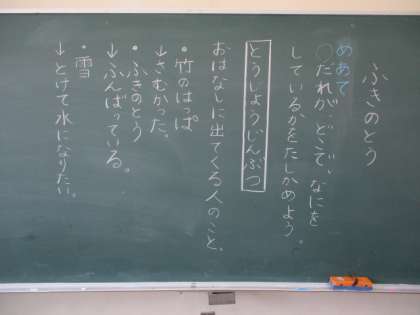 ふきのとう
めあて
○だれが、どこで、なにを
しているかをたしかめよう。
とうじょうじんぶつ
おはなしに出てくる人のこと。
・竹のはっぱ
→さむかった。
・ふきのとう
→ふんばっている。
・雪
→とけて水になりたい。